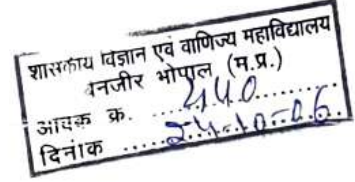 शासकीय विज्ञान एवं वाणिज्य महाविद्यालय
बेनजीर भोपाल (म.प्र.)
आवक क्र. ....440..........
दिनांक .....24-10-06.